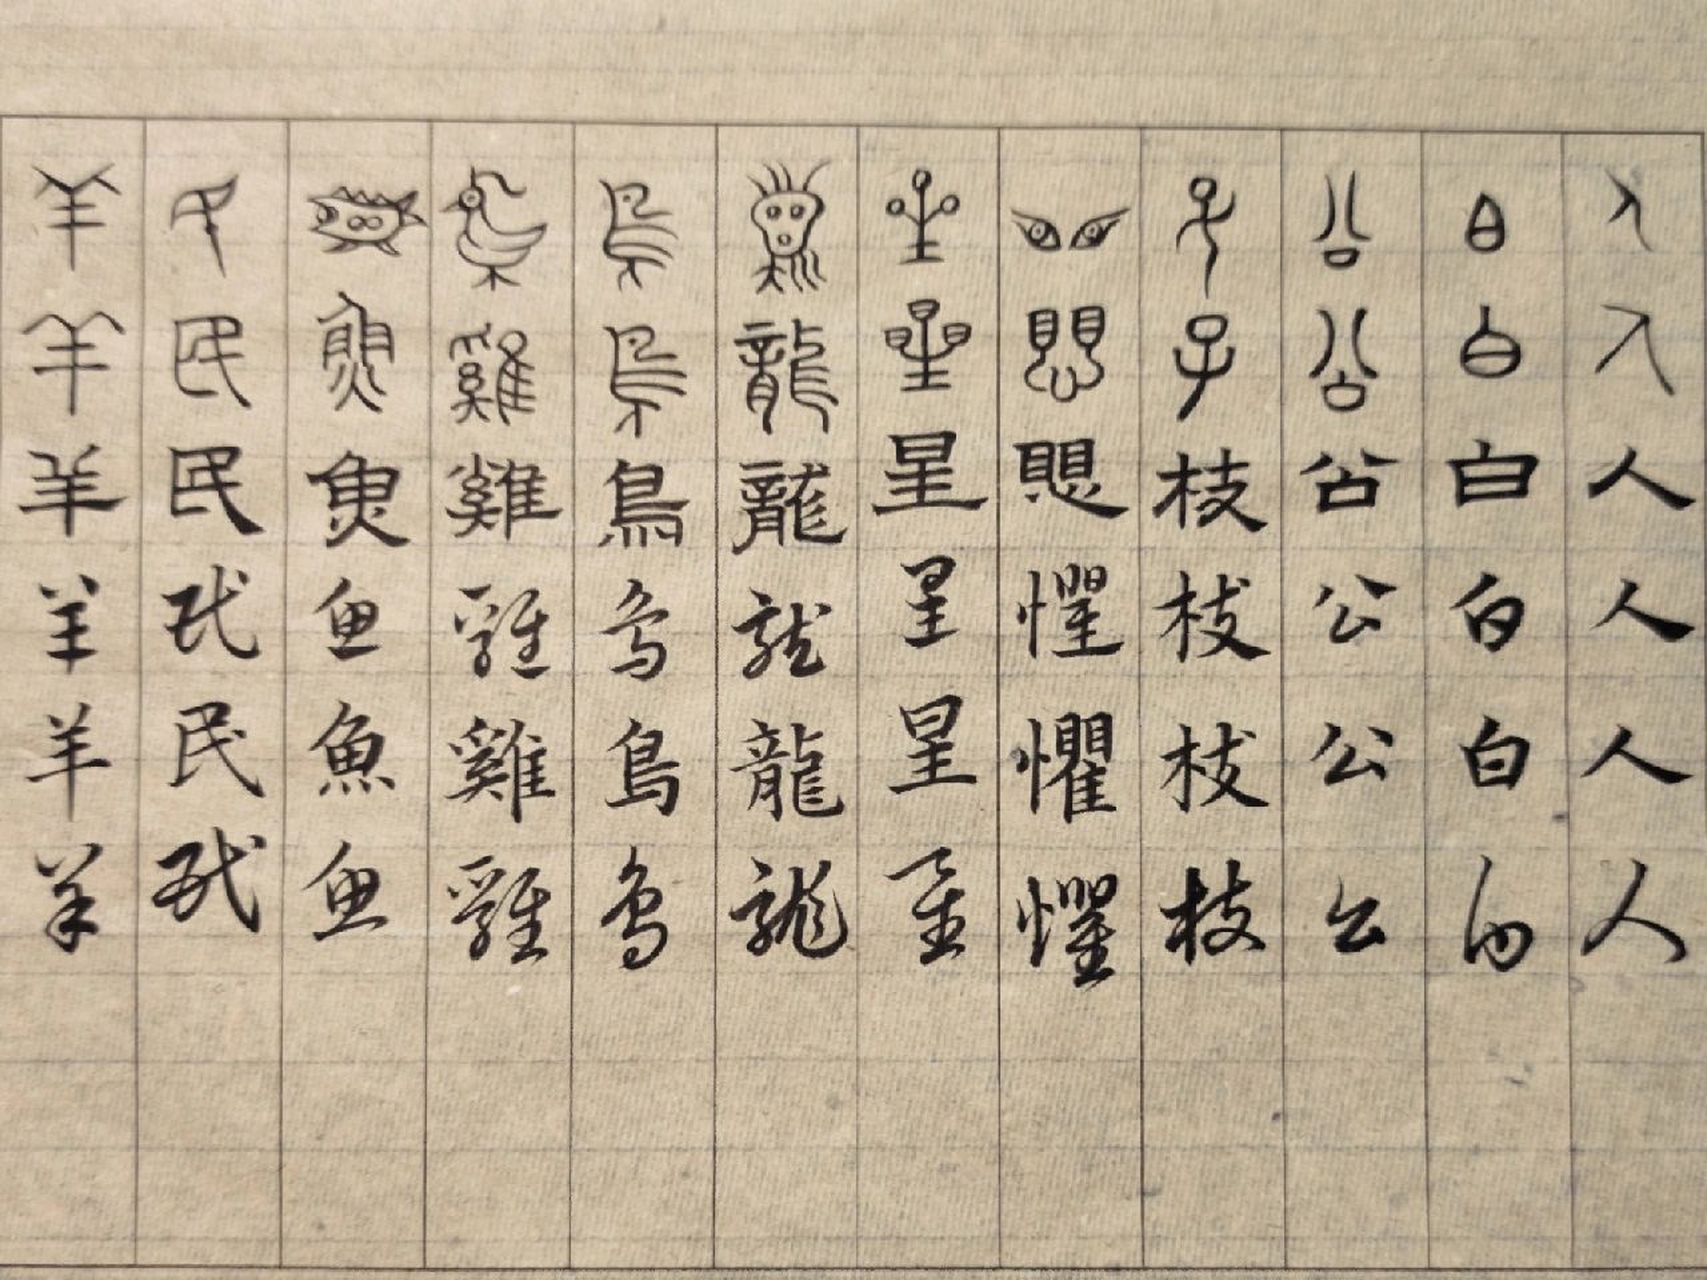 人人人人人人
白白白白白白
公公公公公公
子子枝枝枝枝
懼懼懼懼懼懼
星星星星星星
龍龍龍龍龍龍
鳥鳥鳥鳥鳥鳥
雞雞雞雞雞雞
魚魚魚魚魚魚
民民民民民民
羊羊羊羊羊羊